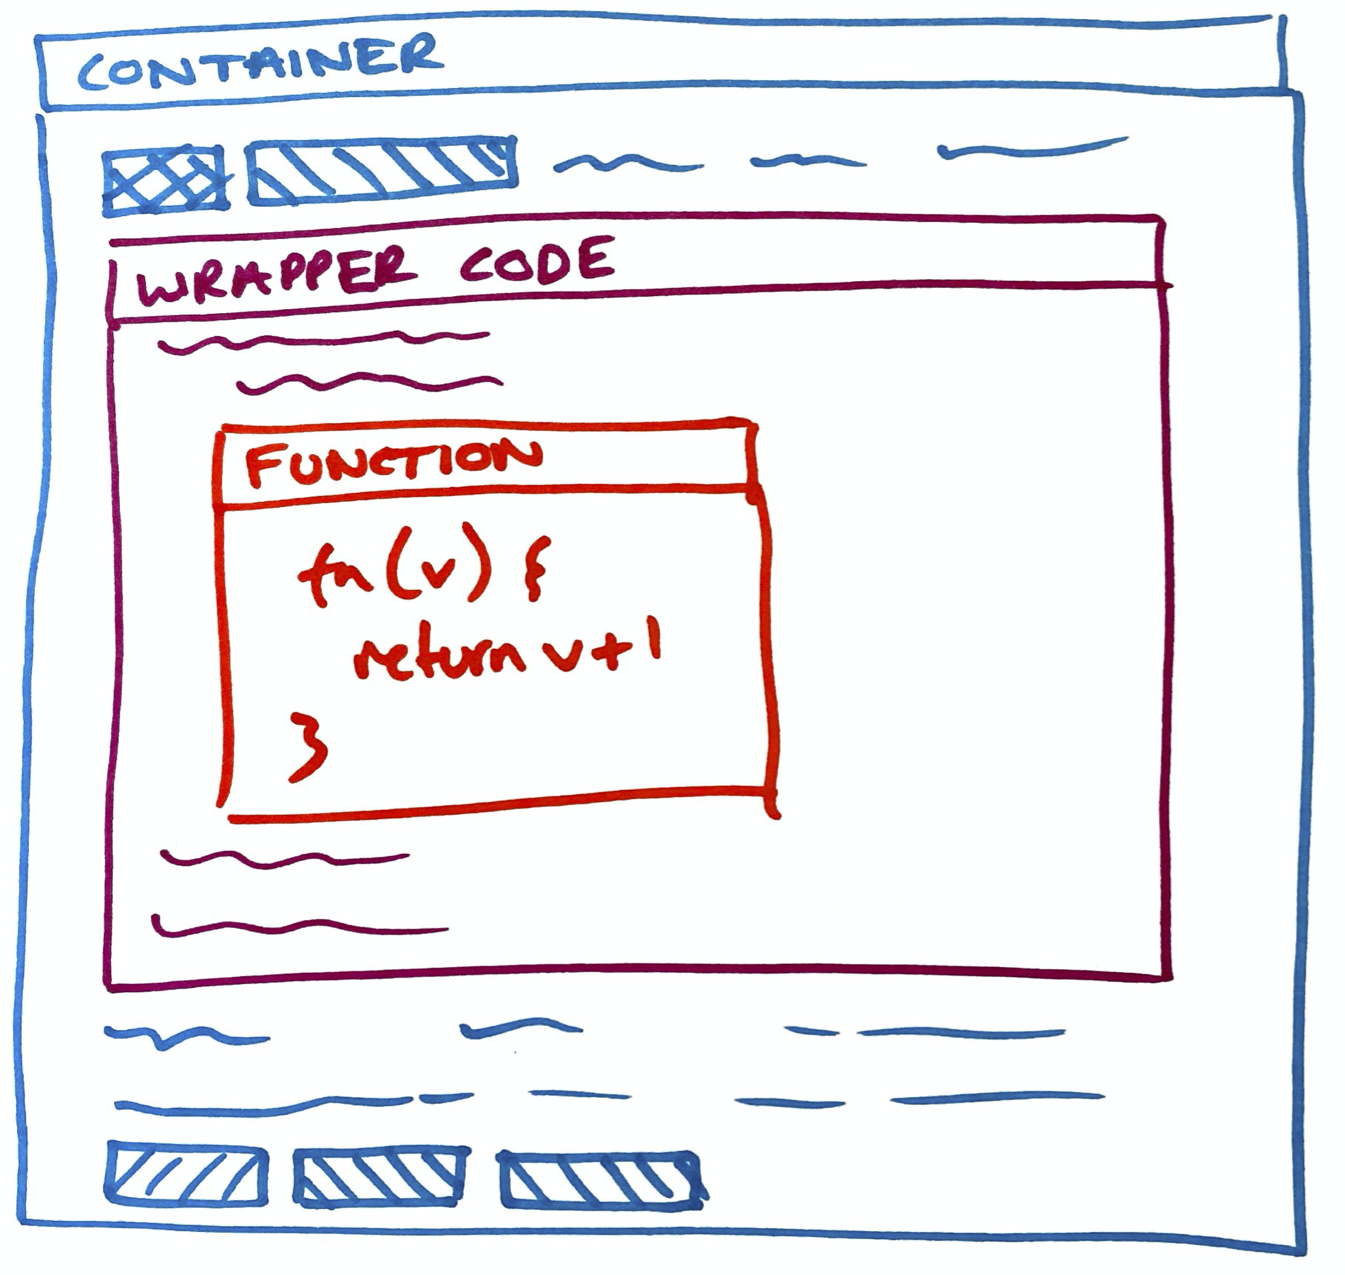 CONTAINER
WRAPPER CODE
FUNCTION
fn(v) {
return v+1
}